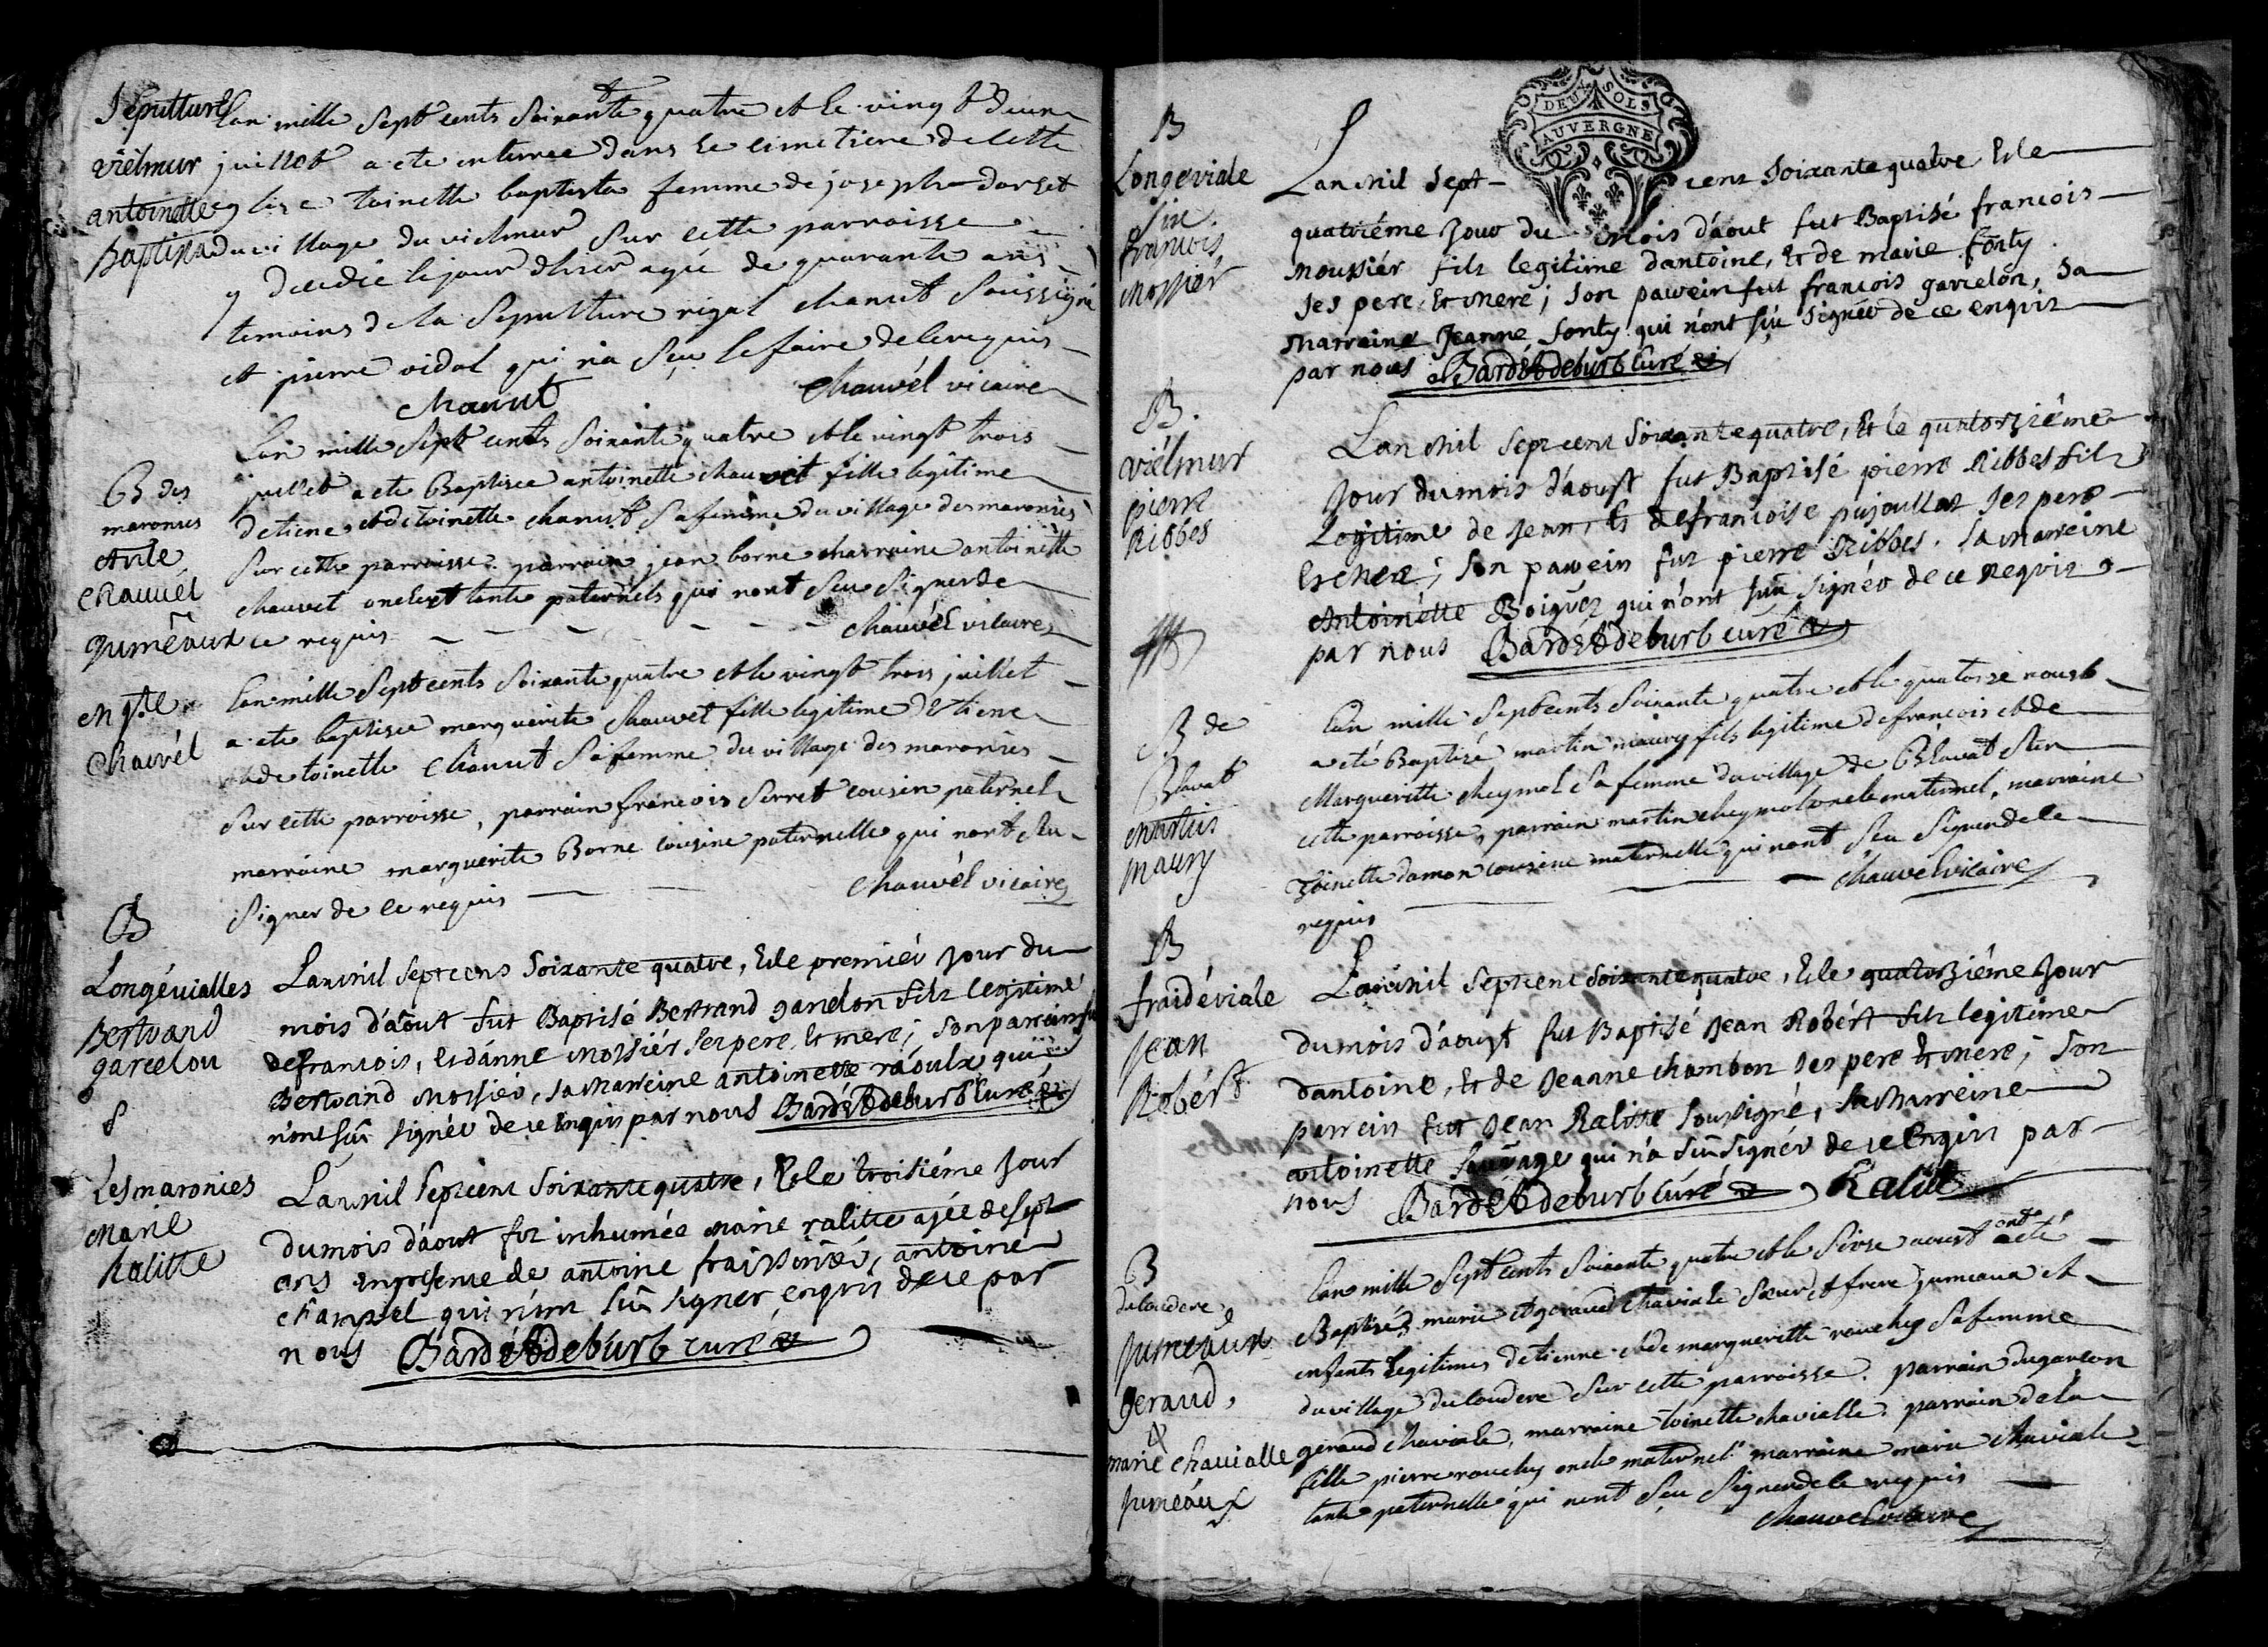 Sepulture
vielmur
antoinette
Baptista
Lan mille Sept cents Soixante quatre et le vingt deux
juillet a ete enterree dans le cimetiere de cette
eglise toinette baptista femme de joseph dorset
du village du vielmur sur cette parroisse
y decedée le jour d'hier agée de quarante ans
temoins de la Sepulture rigal chanut Soussigné
et pierre vidal qui n'a sçu le faire de ce requis
Chanut Chauvél vicaire
B des
maronies
Ante
Chauvél
Jumeaux
Lan mille Sept cents Soixante quatre et le vingt trois
juillet a ete Baptisee antoinette chauvet fille legitime
detiene et de toinette chanut Sa femme du village des maronies
Sur cette parroisse. parrain jean borne marraine antoinette
chauvet oncle et tante paternels qui nont Seu Signer de
ce requis Chauvél vicaire
Mgte
Chauvél
Lan mille Sept cents Soixante quatre et le vingt trois juillet
a ete baptisee marguerite Chauvet fille legitime d'Etiene
et de toinette Chanut Sa femme du village des maronies
Sur cette parroisse, parrain francois Serret cousin paternel
marraine marguerite Borne cousine paternelle qui nont Seu
Signer de ce requis Chauvél vicaire
B
Longévialles
Bertrand
garcelon
Lan mil sept cens Soixante quatre, Et le premiér Jour du
mois d'aout fut Baptisé Bertrand garcelon fils legitime
de francois, Et d'anne Mossiér ses pere Et mere; Son parrain fu
Bertrand Mossiér, Sa Marreine antoinette raoulx qui
n'ont sçu signér de ce Enquis par nous Bardét deburb Curé
Les maronies
Marie
Ralitte
Lan mil sept cent Soixante quatre, Et le troisiéme Jour
du mois d'aout fut inhumée Marie ralitte agée de sept
ans En presense de antoine fraissinée, antoine
champel qui n'ont sçu signer enquis de ce par
nous Bardét deburb curé
B
Longeviale
francois
Mossiér
DEUX SOLS
AUVERGNE
Lan mil Sept cent Soixante quatre Et le
quatriéme Jour du mois d'aout fut Baptisé francois
Moussiér fils legitime d'antoine, Et de marie fonty
ses pere Et mere; Son parrein fut francois garcelon, Sa
Marraine Jeanne fonty qui n'ont sçu signér de ce enquis
par nous Bardét deburb Curé
B.
viélmur
pierre
Ribbes
Lan Mil sept cent Soixante quatre, Et le quatorziéme
Jour du mois d'aoust fut Baptisé pierre Ribbes fils
Legitime de Jean, Et de francoise pujoullat ses pere
Et mere; Son parrein fut pierre Ribbes. Sa marreine
Antoinette Boigués qui n'ont sçu signér de ce requis
par nous Bardét deburb curé
B de
Clavat
Martin
Maury
Lan mille Sept cents Soixante quatre et le quatorze aoust
a eté Baptisé martin maury fils legitime de francois et de
Marguerite cheymol Sa femme du village de Clavat Sur
cette parroisse, parrain martin cheymol oncle maternel, marraine
Toinette damon cousine maternelle qui nont Seu Signer de ce
requis Chauvél vicaire
B
fraidéviale
Jean
Robért
Lan mil sept cent Soixante quatre, Et le quatorziéme Jour
du mois d'aoust fut Baptisé Jean Robért fils legitime
d'antoine, Et de Jeanne chambon ses pere Et mere; Son
parrein fut Jean Ralitte Soussigné, Sa Marreine
antoinette Sauvage qui n'a sçu signér de ce Enquis par
nous Bardét deburb Curé Ralitte
B
du loudere
Jumeaux
geraud,
&
marie Chavialle
Jumeaux
Lan mille Sept cents Soixante quatre et le Seize aoust ont eté
Baptisés marie et geraud Chaviale Sœur et frere jumeaux et
enfants legitimes detienne et de marguerite rouchy Sa femme
du village du loudere Sur cette parroisse. parrain du garcon
geraud chaviale, marraine toinette chavialle. parrain de la
fille pierre rouchy oncle maternel marraine marie chaviale
tante paternelle qui nont Seu Signer de ce requis
Chauvél vicaire